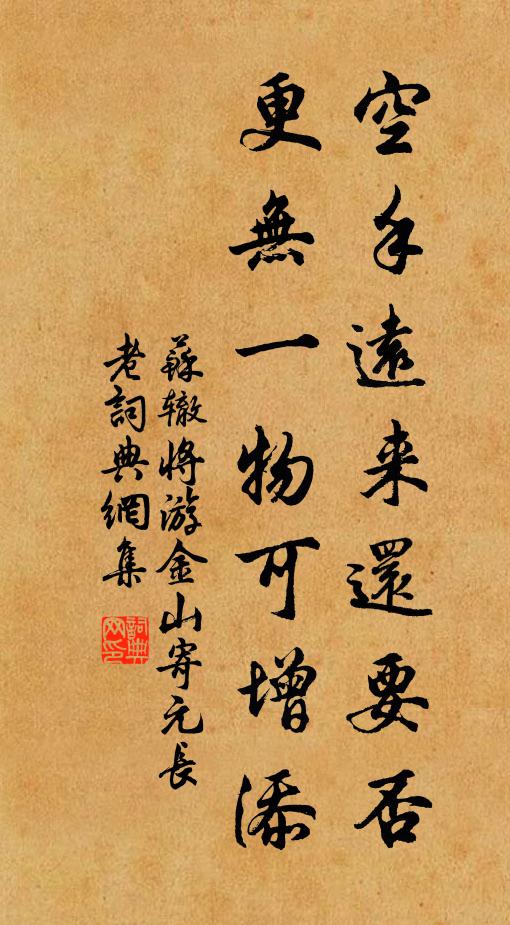 空手遠来還要否
更無一物可增添
蘇辙將游金山寄元長
老詞典網集
詞典網印